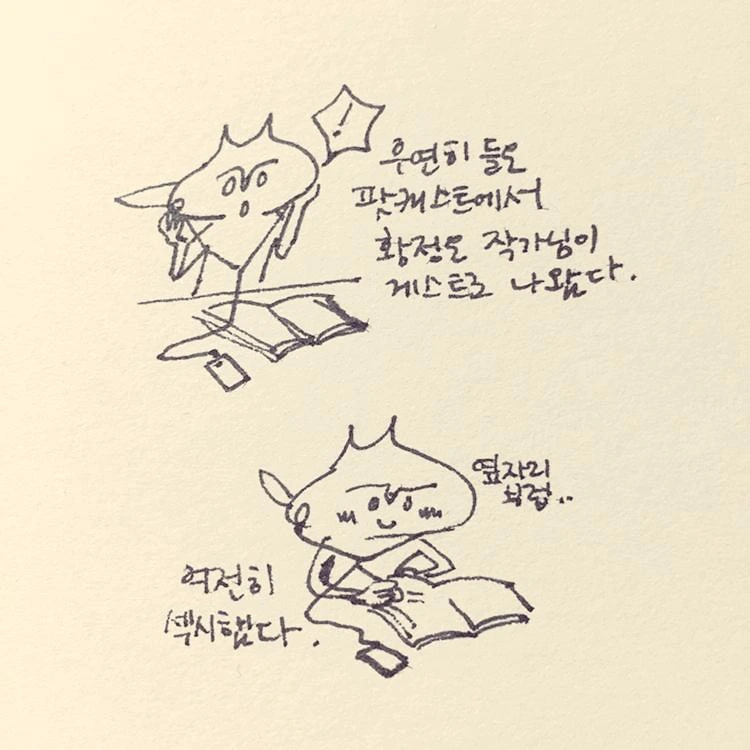 !
우연히 들은
팟캐스트에서
황정은 작가님이
게스트로 나왔다.
옆자리
부럽..
여전히
섹시했다.